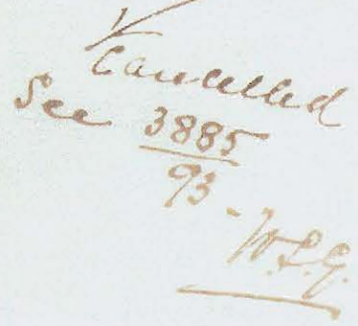 Cancelled
See 3885
93.
W.L.G.